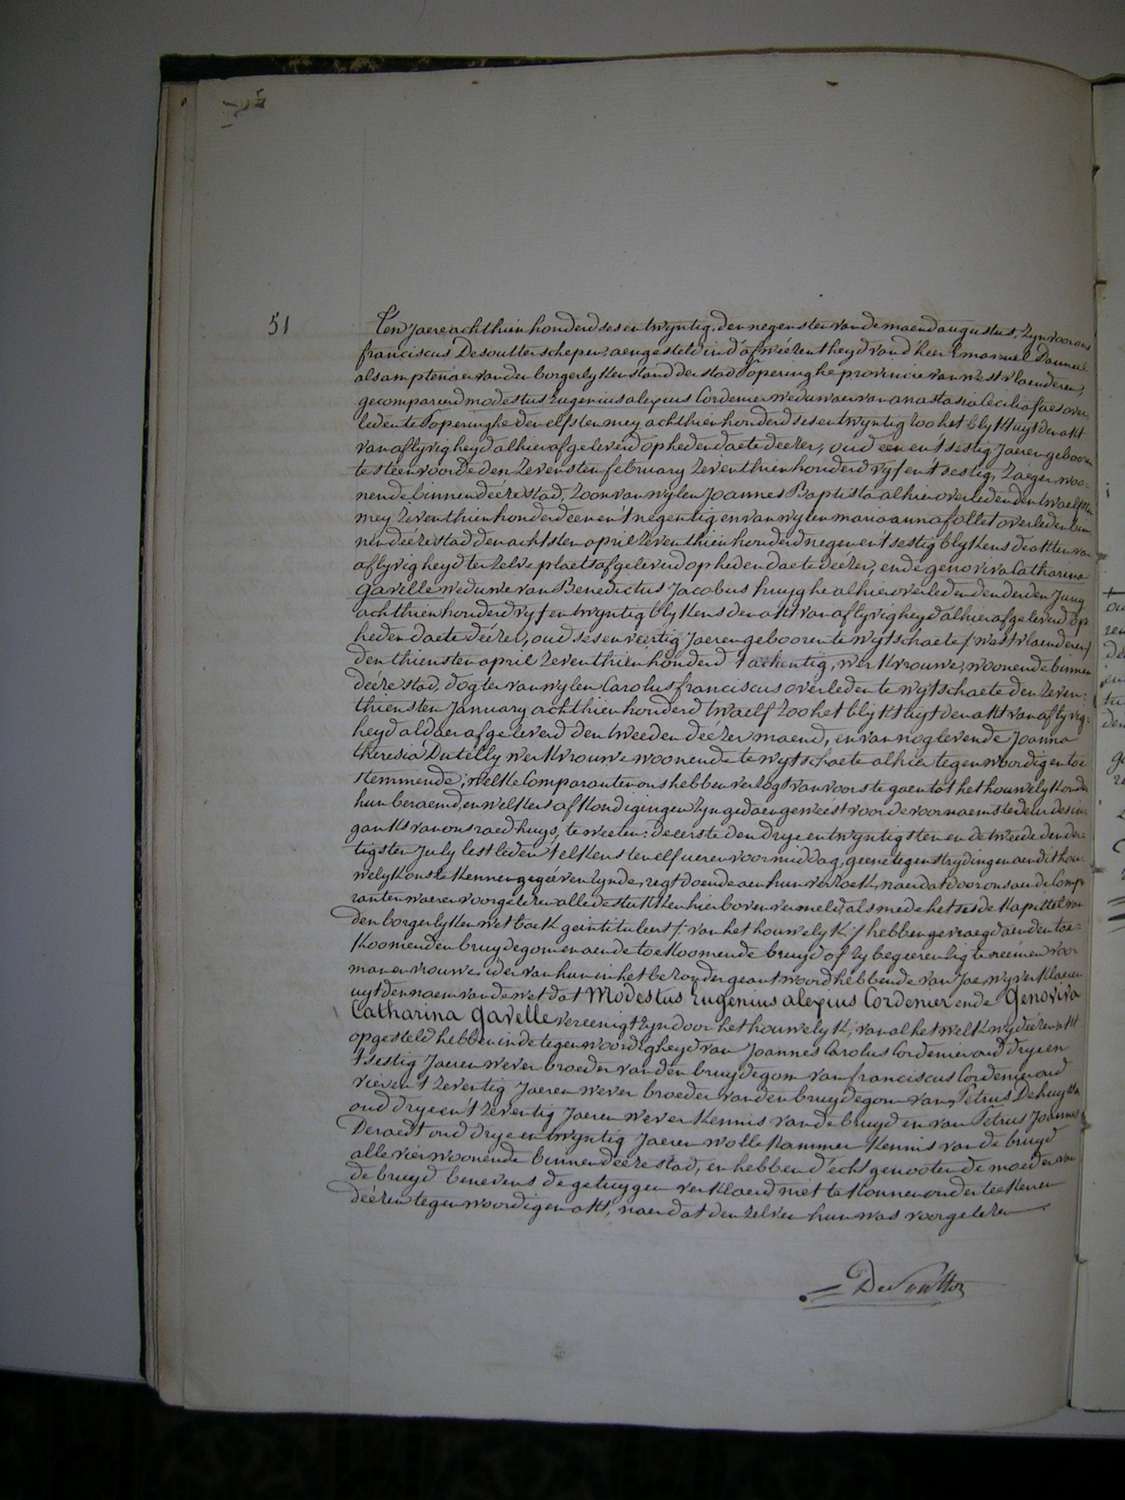 51
Ten Jaere achthien honderd ses en twyntig, den negensten van de maend augustus, zyn voor ons
franciscus Desoutter schepen, aengesteld in d'afweézentheyd van d'heer Emanuel
als amptenaer van den borgerlyken stand der stad Poperinghe provincie van west vlaenderen,
gecompareerd modestus Eugenius alexius Cordenier weduwaer van anastasia Cecilia faes over
leden te Poperinghe den elfsten mey achthien honderd ses en twyntig zoo het blykt uyt den akt
van aflyvigheyd alhier afgeleverd op heden daete deézer, oud een en 't sestig Jaeren gebooren
te steenvoorde den zevensten february zeventhien honderd vyf en 't sestig, zaeger woo-
nende binnen deéze stad, zoon van wylen Joannes Baptista alhier overleden den twaelfsten
mey zeventhien honderd een en 't negentig en van wylen maria anna follet overleden bin
nen deéze stad den achtsten april zeventhien honderd negen en 't sestig blykens de akten van
aflyvigheyd ter zelve plaets afgeleverd op heden daete deézer, ende genoviva Catharina
gaville weduwe van Benedictus Jacobus huyghe alhier overleden den derden Juny
achthien honderd vyf en twyntig blykens den akt van aflyvigheyd alhier afgeleverd op
heden daete deézer, oud ses en veertig Jaeren gebooren te wytschaete / west vlaenderen /
den thiensten april zeventhien honderd t'achentig, werkvrouwe, woonende binnen
deéze stad, dogter van wylen Carolus franciscus overleden te wytschaete den zeven-
thiensten January achthien honderd twaelf zoo het blykt uyt den akt van aflyvig-
heyd aldaer afgeleverd den tweeden deézer maend, en van nog levende Joanna
theresia Dutelly werkvrouwe woonende te wytschaete alhier tegenwoordig en toe
stemmende; welke Comparanten ons hebben verzogt van voorste gaen tot het houwelyk onder
hun beraemd en welkers afkondigingen zyn gedaen geweest voor de voornaemste deur des in
gank van ons raedhuys, te weeten: de eerste den drye en twyntigsten en de tweede den der-
tigsten July lestleden t'elkens ten elf ueren voormiddag, geene tegenstrydingen aen dit hou-
welyk ons te kennen gegeéven zynde, regt doende aen hun verzoek, naer dat door ons aen de Compa
ranten waeren voorgelezen alle de stukken hier boven vermeld als mede het sesde kapittel van
den borgerlyken wetboek geintituleert / van het houwelyk / hebben gevraegd aen den toe-
koomenden bruydegom en aen de toekoomende bruyd of zy begeeren hig te neémen voor
man en vrouwe, ider van hun in het bezonder geantwoord hebbende van Jae, wy verklaeren
uyt den naem van de wet dat Modestus Eugenius alexius Cordenier ende Genoviva
Catharina Gavelle vereenigt zyn door het houwelyk, van al het welk wy deézen akt
opgesteld hebben in de tegenwoordigheyd van Joannes Carolus Cordenier oud drye en
't sestig Jaeren wever broeder van den bruydegom van franciscus Cordenier oud
vier en 't zeventig Jaeren wever broeder van den bruydegom van Petrus
oud drye en 't zeventig Jaeren wever kennis van de bruyd en van Petrus Joannes
Deraedt oud drye en twyntig Jaeren wollekammer kennis van de bruyd
alle vier woonende binnen deéze stad, en hebben d'echtgenooten de moeder van
de bruyd benevens de getuygen verklaerd niet te konnen onderteekenen
deézen tegenwoordigen akt, naer dat den zelven hun was voorgelezen
Desoutter